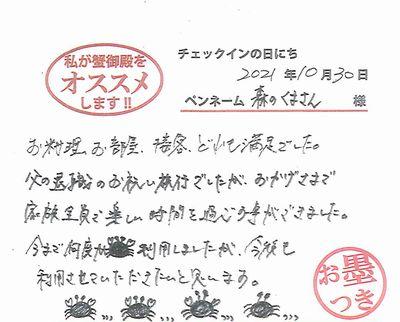 私が蟹御殿を
オススメ
します!!
チェックインの日にち
2021年10月30日
ペンネーム 森のくまさん 様
お料理、お部屋、接客、どれも満足でした。
父の退職のお祝い旅行でしたが、おかげさまで
家族全員で楽しい時間を過ごす事ができました。
今まで何度か利用しましたが、今後も
利用させていただきたいと思います。
お墨
つき